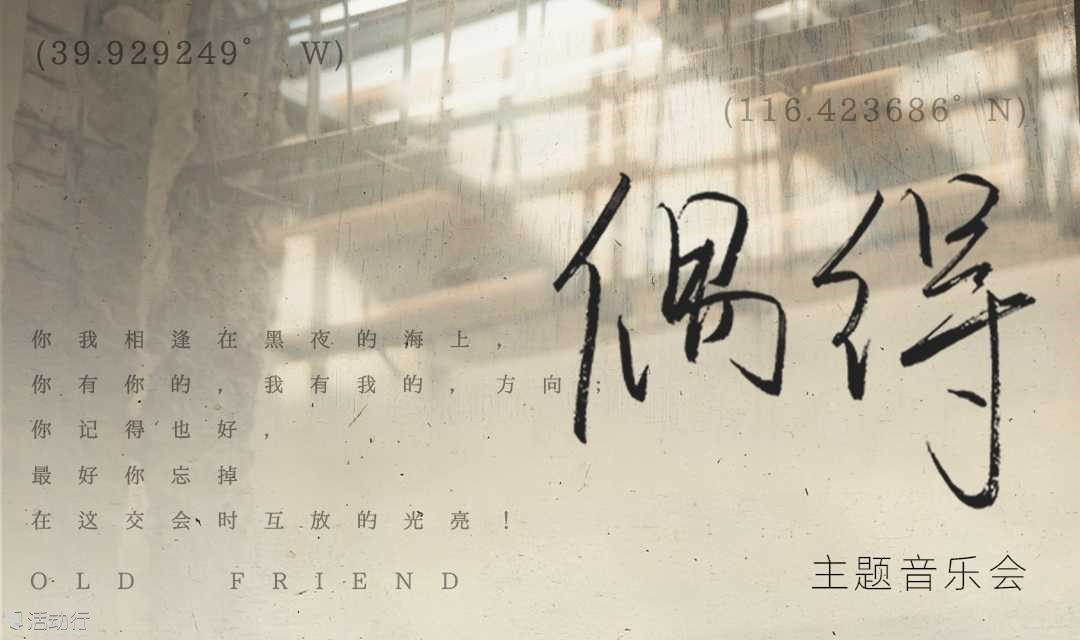 (39.929249° W)
(116.423686° N)
偶得
你我相逢在黑夜的海上，
你有你的，我有我的，方向；
你记得也好，
最好你忘掉
在这交会时互放的光亮！
OLD FRIEND
主题音乐会
活动行